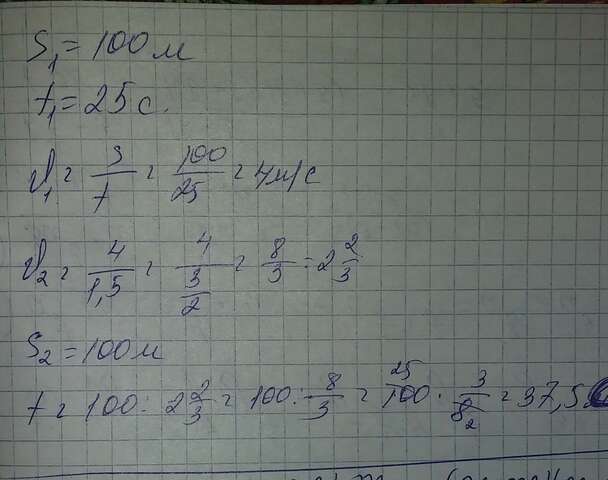 S₁ = 100 м
t₁ = 25 с.
V₁ = S/t = 100/25 = 4 м/с
V₂ = 4/1,5 = 4/(3/2) = 8/3 = 2 2/3
S₂ = 100 м
t = 100 : 2 2/3 = 100 : 8/3 = 100 25 · 3/8 2 = 37,5